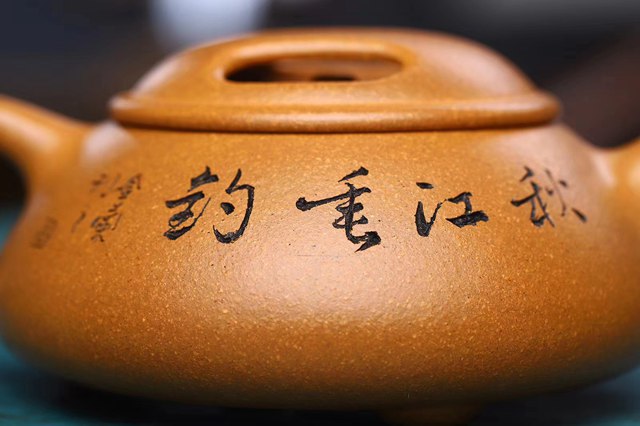 秋江垂钓